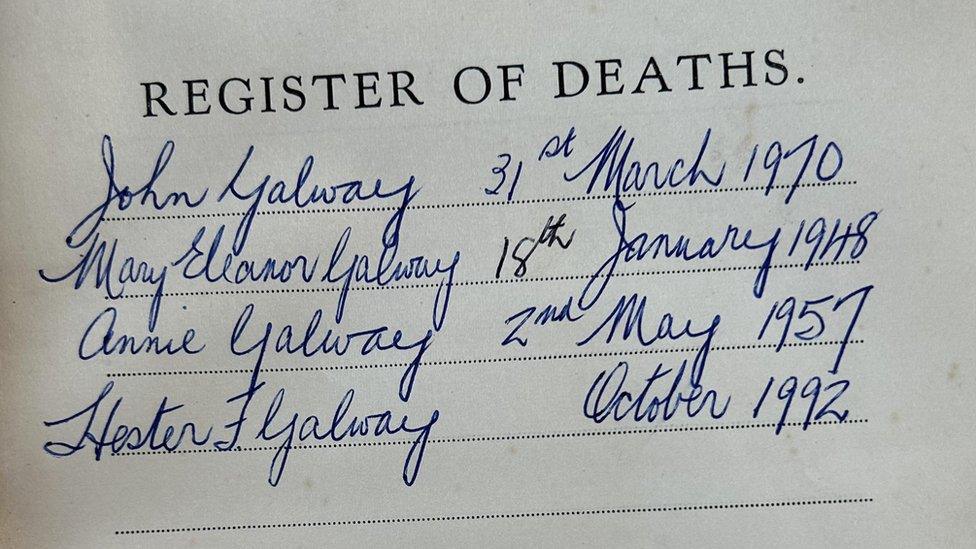 REGISTER OF DEATHS.
John Galway 31st March 1970
Mary Eleanor Galway 18th January 1948
Annie Galway 2nd May 1957
Hester F. Galway October 1992